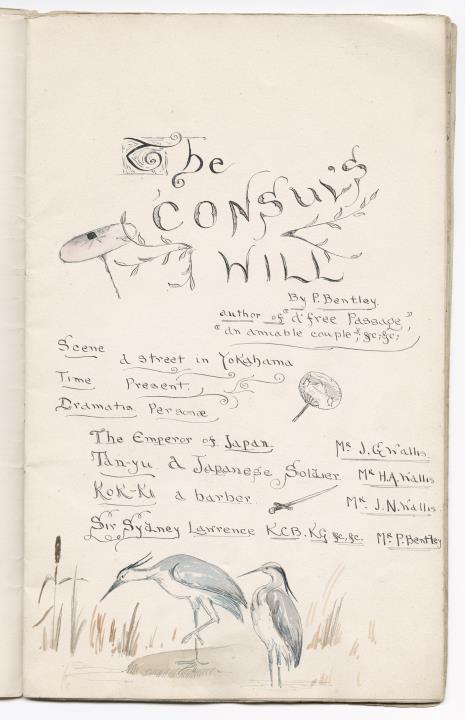 The
CONSUL'S
WILL
By P. Bentley.
author of "A free Passage",
"An amiable couple", &c; &c;
Scene
A street in Yokahama
Time Present.
Dramatis Personæ
The Emperor of Japan. Mr J.G. Wallis.
Tan-yu. A Japanese Soldier Mr H.A. Wallis
Kok-Ki a barber Mr J.N. Wallis
Sir Sydney Lawrence KCB. KG &c. &c. Mr P. Bentley